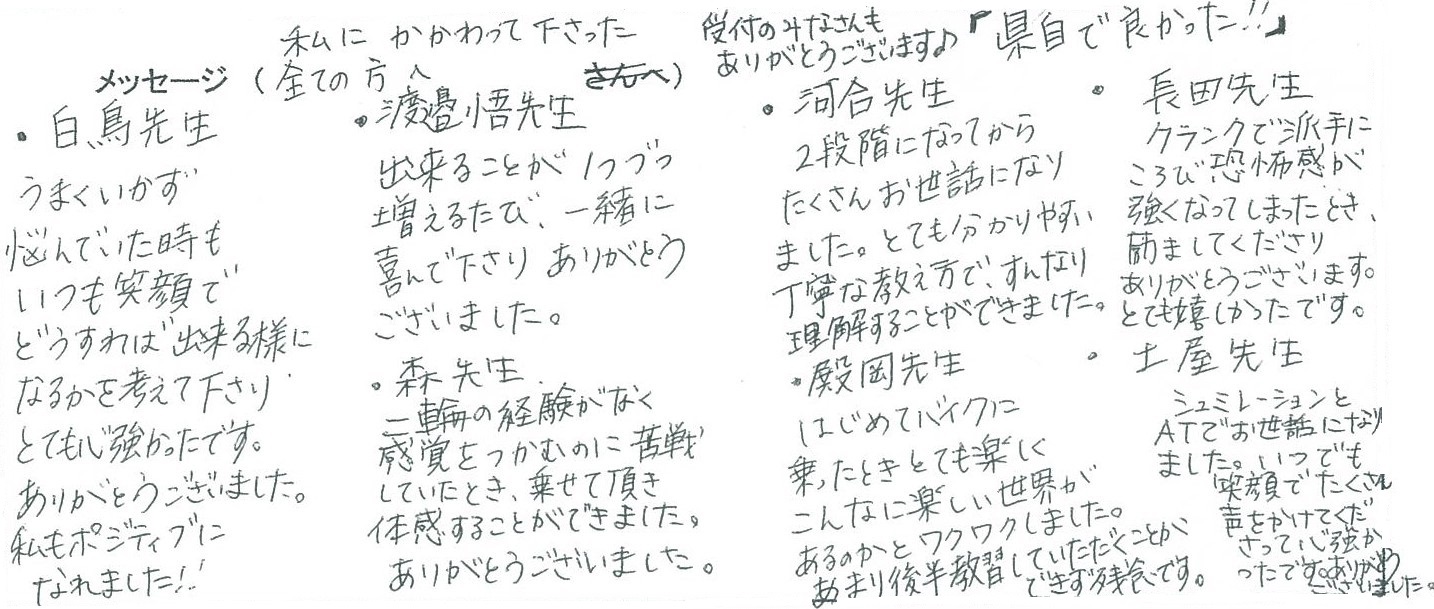 私に かかわって下さった
メッセージ (全ての方へ さんへ)
受付のみなさんも
ありがとうございます♪
『県自で良かった!!』
・白鳥先生
うまくいかず
悩んでいた時も
いつも笑顔で
どうすれば出来る様に
なるかを考えて下さり
とても心強かったです。
ありがとうございました。
私もポジティブに
なれました!!
・渡邉悟先生
出来ることが1つづつ
増えるたび、一緒に
喜んで下さり ありがとう
ございました。
・森先生
二輪の経験がなく
感覚をつかむのに苦戦
していたとき、乗せて頂き
体感することができました。
ありがとうございました。
・河合先生
2段階になってから
たくさんお世話になり
ました。とても分かりやすい
丁寧な教え方で、すんなり
理解することができました。
・殿岡先生
はじめてバイクに
乗ったときとても楽しく
こんなに楽しい世界が
あるのかとワクワクしました。
あまり後半教習していただくことが
できず残念です。
・長田先生
クランクで派手に
ころび恐怖感が
強くなってしまったとき、
励ましてくださり
ありがとうございます。
とても嬉しかったです。
・土屋先生
ミュミレーションと
ATでお世話になり
ました。いつでも
笑顔でたくさん
声をかけてくだ
さって心強か
ったです。ありがとう
ございました。